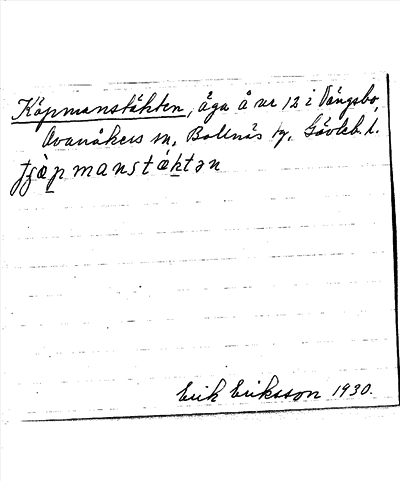 Köpmanstäkten, äga å nr 12 i Vängsbo,
Ovanåkers sn, Bollnäs tg, Gävleb. l.
fjæpmanstæktən
Erik Eriksson 1930.